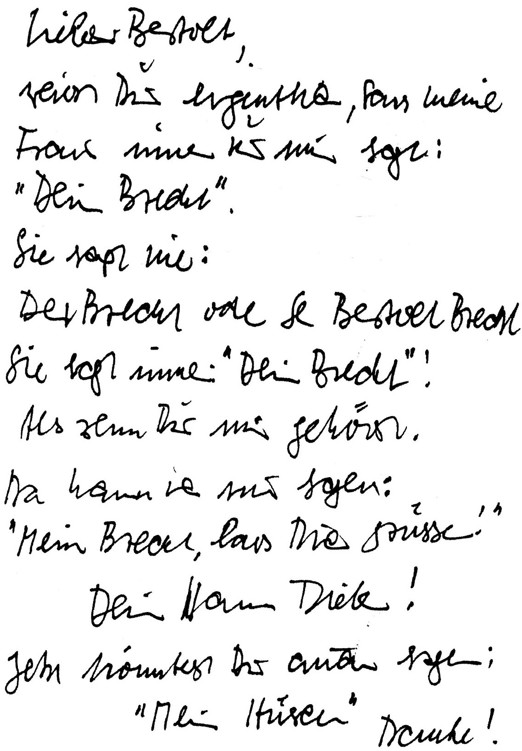 Lieber Bertolt,
weisst Du eigentlich, dass meine
Frau immer zu mir sagt:
"Dein Brecht".
Sie sagt nie:
Der Brecht oder der Bertolt Brecht
Sie sagt immer: "Dein Brecht"!
Als wenn Du mir gehörst.
Da kann ich nur sagen:
"Mein Brecht, lass Dich grüssen!"
Dein Hanns Dieter!
Jetzt könntest Du auch sagen:
"Mein Hüsch" Danke!